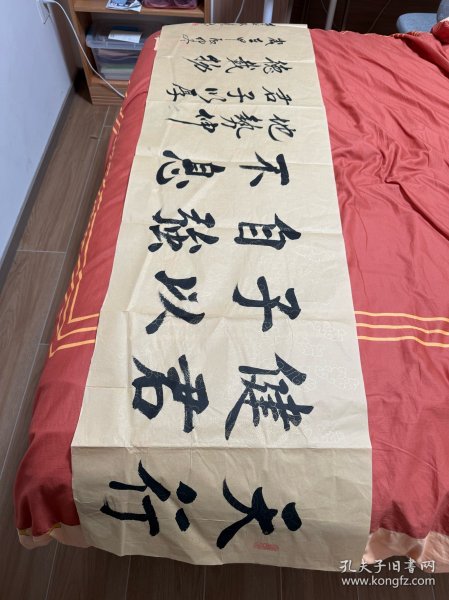 天行
健君
子以
自強
不息
地勢坤
君子以厚
德載物
孔夫子旧书网
www.kongfz.com